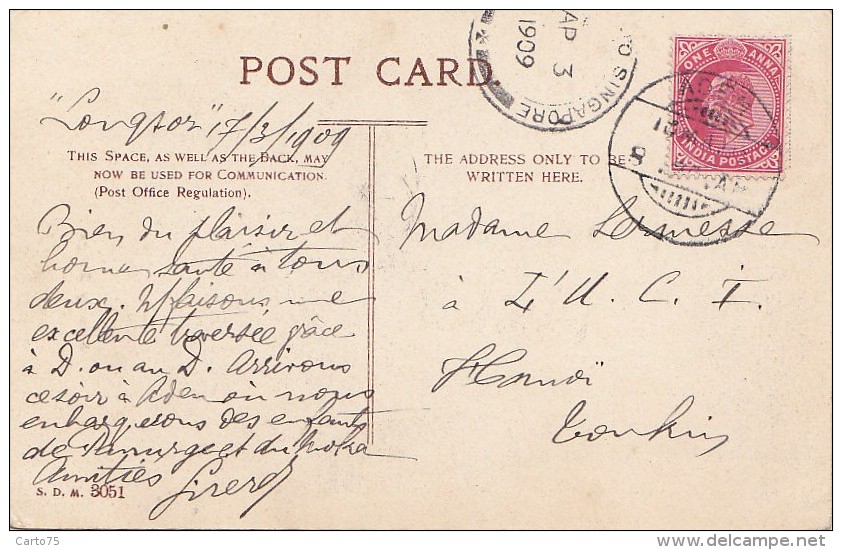 POST CARD.
TO SINGAPORE
AP 3
1909
ONE ANNA
INDIA POSTAGE
ADEN
"Longsor" 17/3/1909
THIS SPACE, AS WELL AS THE BACK, MAY
NOW BE USED FOR COMMUNICATION.
(Post Office Regulation).
THE ADDRESS ONLY TO BE
WRITTEN HERE.
Bien du plaisir et
bonne santé à tous
deux. Ns faisons une
excellente traversée grâce
à D. ou au D. Arrivons
ce soir à Aden où nous
embarquerons des enfants
de et du Moka
Amitiés
Madame
à L'U. C. I.
Hanoï
Tonkin
S. D. M. 3051
Carto75
www.delcampe.net